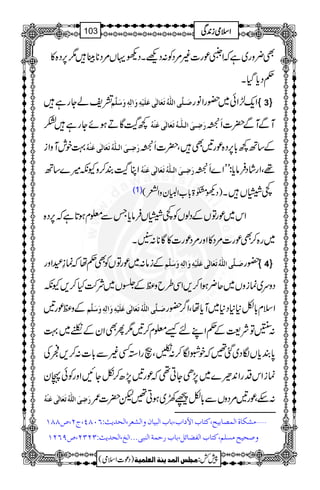 اسلامی زندگی 103
بھی ضروری ہے کہ اجنبی عورت غیر مرد کو نہ دیکھے۔ دیکھو یہاں مرد نابینا ہیں مگر پردہ کا
حکم دیا گیا۔
{3} ایک لڑائی میں حضور انور صَلَّی اللہُ تَعَالٰی عَلَیْہِ وَاٰلِہٖ وَسَلَّم تشریف لے جا رہے ہیں
آگے آگے حضرت اَنْجَشہ رَضِیَ اللہُ تَعَالٰی عَنْہُ کچھ گیت گاتے ہوئے جا رہے ہیں لشکر
کے ساتھ کچھ باپردہ عورتیں بھی ہیں، حضرت اَنْجَشہ رَضِیَ اللہُ تَعَالٰی عَنْہُ بہت خوش آواز
تھے، ارشاد فرمایا: ’’اے اَنْجَشہ رَضِیَ اللہُ تَعَالٰی عَنْہُ اپنا گیت بند کرو کیونکہ میرے ساتھ
کچی شیشیاں ہیں۔ (دیکھو مشکوٰۃ باب البیان والشعر)(1)
اس میں عورتوں کے دلوں کو کچی شیشیاں فرمایا، جس سے معلوم ہوتا ہے کہ پردہ
میں رہ کر بھی عورت مرد کا اور مرد عورت کا گانا نہ سنیں۔
{4} حضور صَلَّی اللہُ تَعَالٰی عَلَیْہِ وَاٰلِہٖ وَسَلَّم کے زمانہ میں عورتوں کو بھی حکم تھا کہ نمازِ عید اور
دوسری نمازوں میں حاضر ہوا کریں اسی طرح وعظ کے جلسوں میں شرکت کیا کریں کیونکہ
اسلام بالکل نیا نیا دنیا میں آیا تھا، اگر حضور صَلَّی اللہُ تَعَالٰی عَلَیْہِ وَاٰلِہٖ وَسَلَّم کے وعظ عورتیں
نہ سنتیں تو شریعت کے حکم اپنے لئے کیسے معلوم کرتیں مگر پھر بھی ان کے نکلنے میں بہت
پابندیاں لگا دی گئی تھیں کہ خوشبو لگا کر نہ نکلیں، بیچ راستہ کسی غیر سے بات نہ کریں فجر کی
نماز اس قدر اندھیرے میں پڑھی جاتی تھی کہ عورتیں پڑھ کر نکل جائیں اور کوئی پہچان
نہ سکے عورتیں مردوں سے بالکل پیچھے کھڑی ہوتی تھیں لیکن حضرت عمر رَضِیَ اللہُ تَعَالٰی عَنْہُ
۔۔۔۔مشکاة المصابیح، کتاب الآداب، باب البیان والشعر، الحدیث: ۴۸۰۶، ج۲، ص۱۸۸
وصحیح مسلم، کتاب الفضائل، باب رحمة النبی...الخ، الحدیث: ۲۳۲۳، ص۱۲۶۹
پیش کش: مجلس المدینة العلمیة (دعوتِ اسلامی)